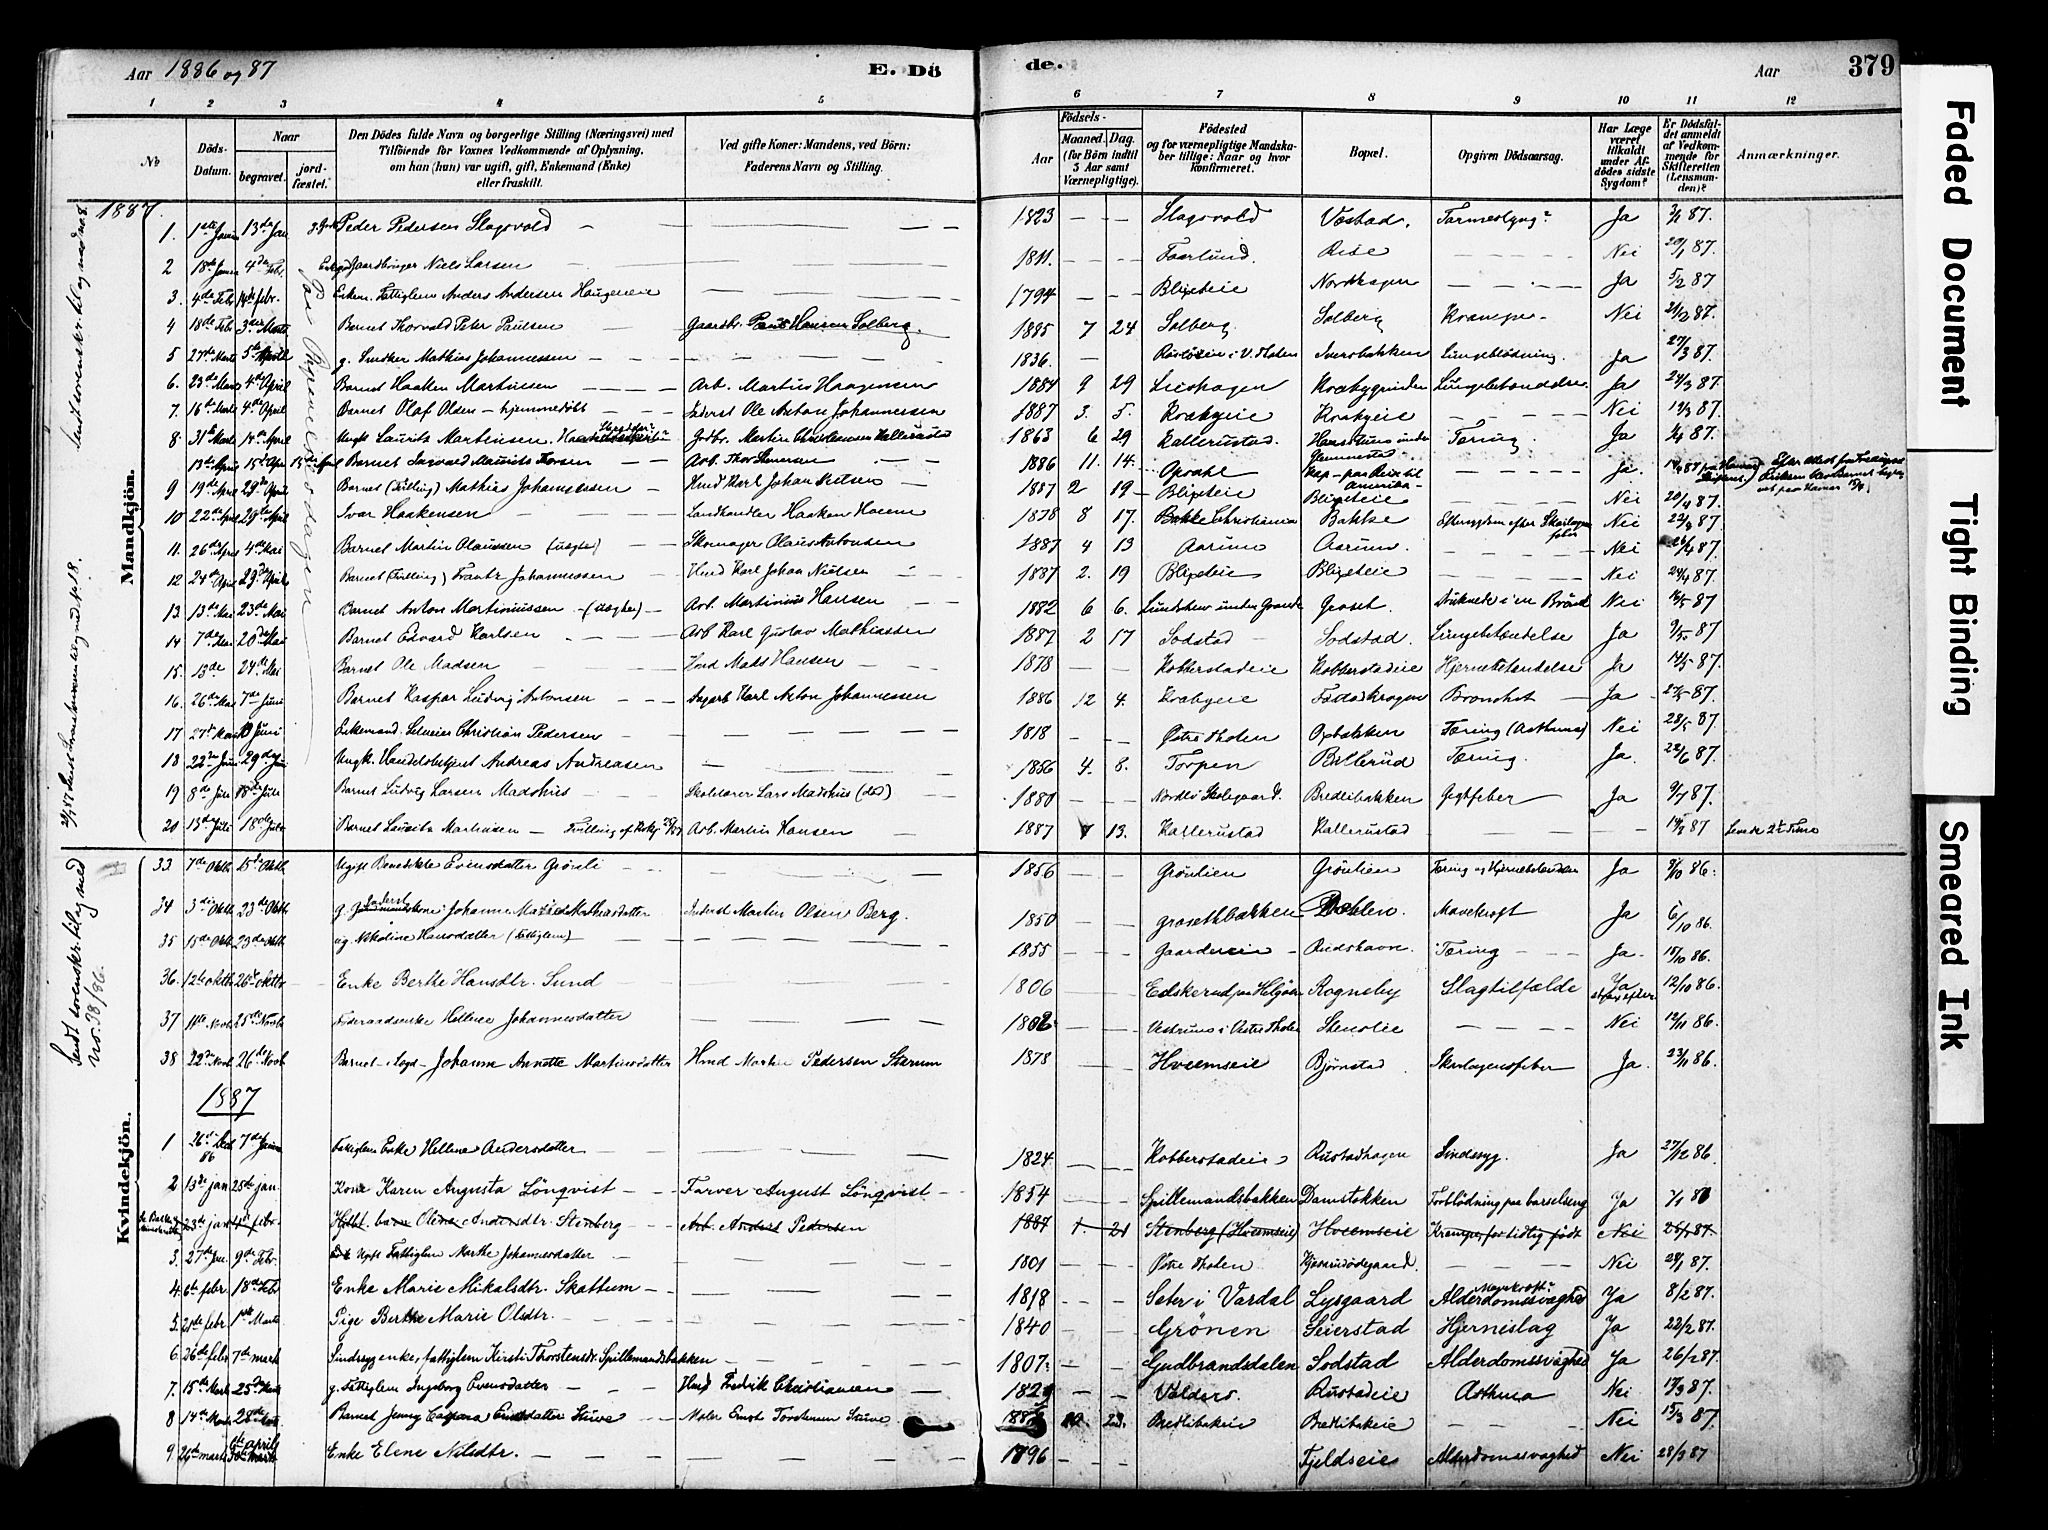 Aar 1886 og 87
E. Dö
de.
Aar
379
1 2 3 4 5 6 7 8 9 10 11 12
No
Döds-Datum.
Naar
begravet.
jord-fæstet.
Den Dödes fulde Navn og borgerlige Stilling (Næringsvei) med
Tilföiende för Voxnes Vedkommende af Oplysning,
om han (hun) var ugift, gift, Enkemand (Enke)
eller fraskilt.
Ved gifte Koner: Mandens, ved Börn:
Faderens Navn og Stilling.
Födsels-
Aar
Maaned.
Dag.
(for Börn indtil
5 Aar samt
Værnepligtige).
Födested
og for værnepligtige Mandska-
ber tillige: Naar og hvor
konfirmeret.
Bopæl.
Opgiven Dödsaarsag.
Har Læge
været
tilkaldt
under Af-
dödes sidste
Sygdom?
Er Dödsfal-
det anmeldt
af Vedkom-
mende for
Skifteretten
(Lensman-
den)?
Anmærkninger.
1887.
Mandkjön.
1. 1ste Janu 13de Jan Peder Pedersen Slagsvold 1823 Slagsvold Væstad. Ja 87.
2 18de Janu 4de Febr. Gaardbruger Niels Larsen 1811. Faarlund. Rise Nei 20/1 87.
3. 4de Febr 14de febr. Enkem. Fattiglem Anders Andersen Haugeneie 1794 Blixeie Nordhagen Ja 5/2 87
4 18de Febr 3die Marts Barnet Thorvald Peter Paulsen Gaardbr. Paul Hansen Solberg. 1885 7 24 Solberg. Solberg Krampe Nei 21/2 87.
5 27de Marts 5te April g. Snedker Mathias Johannessen 1836. Iversbakken Lungeblødning. Ja 27/3 87.
6. 23de Marts 4de April Barnet Haaken Martinsen Arb. Martius Haagensen 1884 9 29 Lieshagen Ja 24/3 87.
7. 16de Marts 4de April Barnet Olaf Olsen - hjemmedøbt Inderst Ole Anton Johannessen 1887 3. 5. Krabyeie Krabyeie Nei 19/3 87.
8. 31te Marts 14de April Ungk. Lauritz Martinsen. Godbr. Martin Christensen Kallerustad 1863 6 29 Kallerustad. Tæring. Ja 87.
13de April 15de Apr 15de April Barnet Ingvald Maurits Thorsen Arb. Thor Simensen 1886 11. 14. Opdahl Ja.
9 19de April 29de April Barnet (Tvilling) Mathias Johannessen Hmd Karl Johan Nilsen 1887 2 19 Blixeie Blixeie Nei 20/4 87.
10 22de April 29de April Ivar Haakensen Landhandler Haaken 1878 8 17. Bakke Christiania Bakke Eftersygdom efter Skarlagensfeber Nei 87.
11. 26de April 4de Mai Barnet Martin Olaussen (uægte) Skomager Olaus Antonsen 1887 4 13 Aarum Aarum. Nei 87.
12 24de April 29de April Barnet (Tvilling) Frantz Johannessen Hmd Karl Johan Nielsen 1887 2. 19 Blixeie Blixeie Nei 24/4 87.
13. 13de Mai 23de Mai Barnet Anton Martiniussen (uægte) Arb. Martinius Hansen 1882 6 6. Groset. Druknede i en Brönd Nei 87
14 7de Mai 20de Mai Barnet Edvard Karlsen Arb Karl Gustav Mathiassen 1887 2 17 Sodstad Sodstad. Lungebetændelse Ja 9/5 87
15. 13de 24de Mai Barnet Ole Madsen Hmd Mads Hansen 1878 Kobberstadeie Kobberstadeie Hjernebetændelse Ja 14/5 87.
16. 26de Mai 7de Juni Barnet Kaspar Ludvig Antonsen Karl Anton Johannessen 1886 12 4. Krabyeie Bronchit Ja 27/5 87.
17 27de Mai Juni Enkemand Christian Pedersen 1818 Østre Thoten Opbakken Tæring (Asthma) Nei 28/5 87.
18 22de Juni 29de Juni Ungk. Handelsbetjent Andreas Andreasen 1856 4. 8. Torpen Ballerud Tæring. Ja. 22/6 87.
19 8de Juli 18de Juli Barnet Ludvig Larsen Madshus Skolelærer Lars Madshus (død) 1880 Bredlibakken Gigtfeber Ja 9/7 87.
20 13de Juli 18de Juli Barnet Lauritz Martinsen Tvilling Arb. Martin Hansen 1887 13. Kallerustad Kallerustad 87 Levede 2½ Time
Kvindekjön.
33 7de Oktb 15de Oktb Ugift Benedikte Evensdatter Grönli 1856 Gröntien Gröntien Tæring og Hjernebetændelse Ja 8/10 86.
34 3de Oktb 23de Oktb g. Johanne Mathiasdatter Inderst Martin Olsen Berg. 1850 Grosethbakken Mavekræft Ja 6/10 86.
35 15de Oktb 23de Oktb ug Nikoline Hansdatter (Fattiglem) 1855 Gaardereie Tæring Ja. 15/10 86.
36. 12te oktb 26de oktbr Enke Berthe Hansdtr. Sund 1806 Edskerud paa Helgøen Rogneby Slagtilfælde Ja 12/10 86.
37 11te Novb 25de Novb Føderaadsenke Hellene Johannesdatter 1802 Vestrum i Vestre Thoten Stenslie Nei 12/11 86.
38 22de Novb 26de Novb Barnet Johanne Annette Martinsdatter Hmd Martin Pedersen Starum 1878 Hveemseie Bjørnstad Skarlagensfeber Ja 23/11 86.
1887
1 26de Decb 86 7de Janu Fattiglem Enke Hellene Andersdatter 1824 Kobberstadeie Rustadhagen Sindssyg. Ja 27/12 86
2 13de jan 28de jan. Kone Karen Augusta Lönqvist Farver August Lönqvist 1854 Spillemandsbakken Damstokken Forblödning paa barselseng Ja
23de jan Olene Andersdtr. Stenberg Arb. Anders Pedersen 1887 1. 21 Stenberg (Hveemseie) Hveemseie Krampe, for tidlig født Nei 26/1 87.
3. 27de Jan 9de Febr. Ugift Fattiglem Marthe Johannesdatter 1801 Østre Thoten Nei 87.
4. 6te febr. 18de Febr Enke Marie Mikalsdtr. Skattum 1818 Seter i Vardal Lysgaard Mavekræft? Alderdomssvaghed Ja 8/2 87.
5. 21de febr. 1ste Marts Pige Berthe Marie Olsdtr. 1840 Grönen Seierstad Hjernislag Ja 22/2 87.
6. 26de febr 7de mark Sindssyg enke, fattiglem Kirsti Thorstensdr. Spillemandsbakken 1807. Gudbrandsdalen Sodstad Alderdomssvaghed Ja 26/2 87.
7. 15de Mark 25de Mark g. Fattiglem Ingeborg Evensdatter Hmd Fredrik Christiansen Valders Rustadeie Asthma Nei 87.
8 14de Mark 28de Mark Barnet Jenny Caspara Ernstdatter Stuve Maler Ernst Torstensen Stuve 23. Bredlibakeie Bredlibakeie Nei 15/3 87.
9. 26de marts 6te april Enke Elene Nilsdtr. 1796 Fjeldseie Alderdomssvaghed Nei 28/3 87
Faded Document
Tight Binding
Smeared Ink